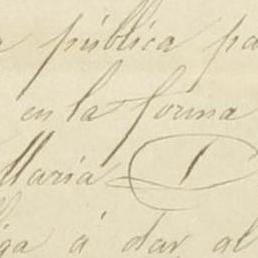 pública pa
en la forma
Maria D
iga á dar al